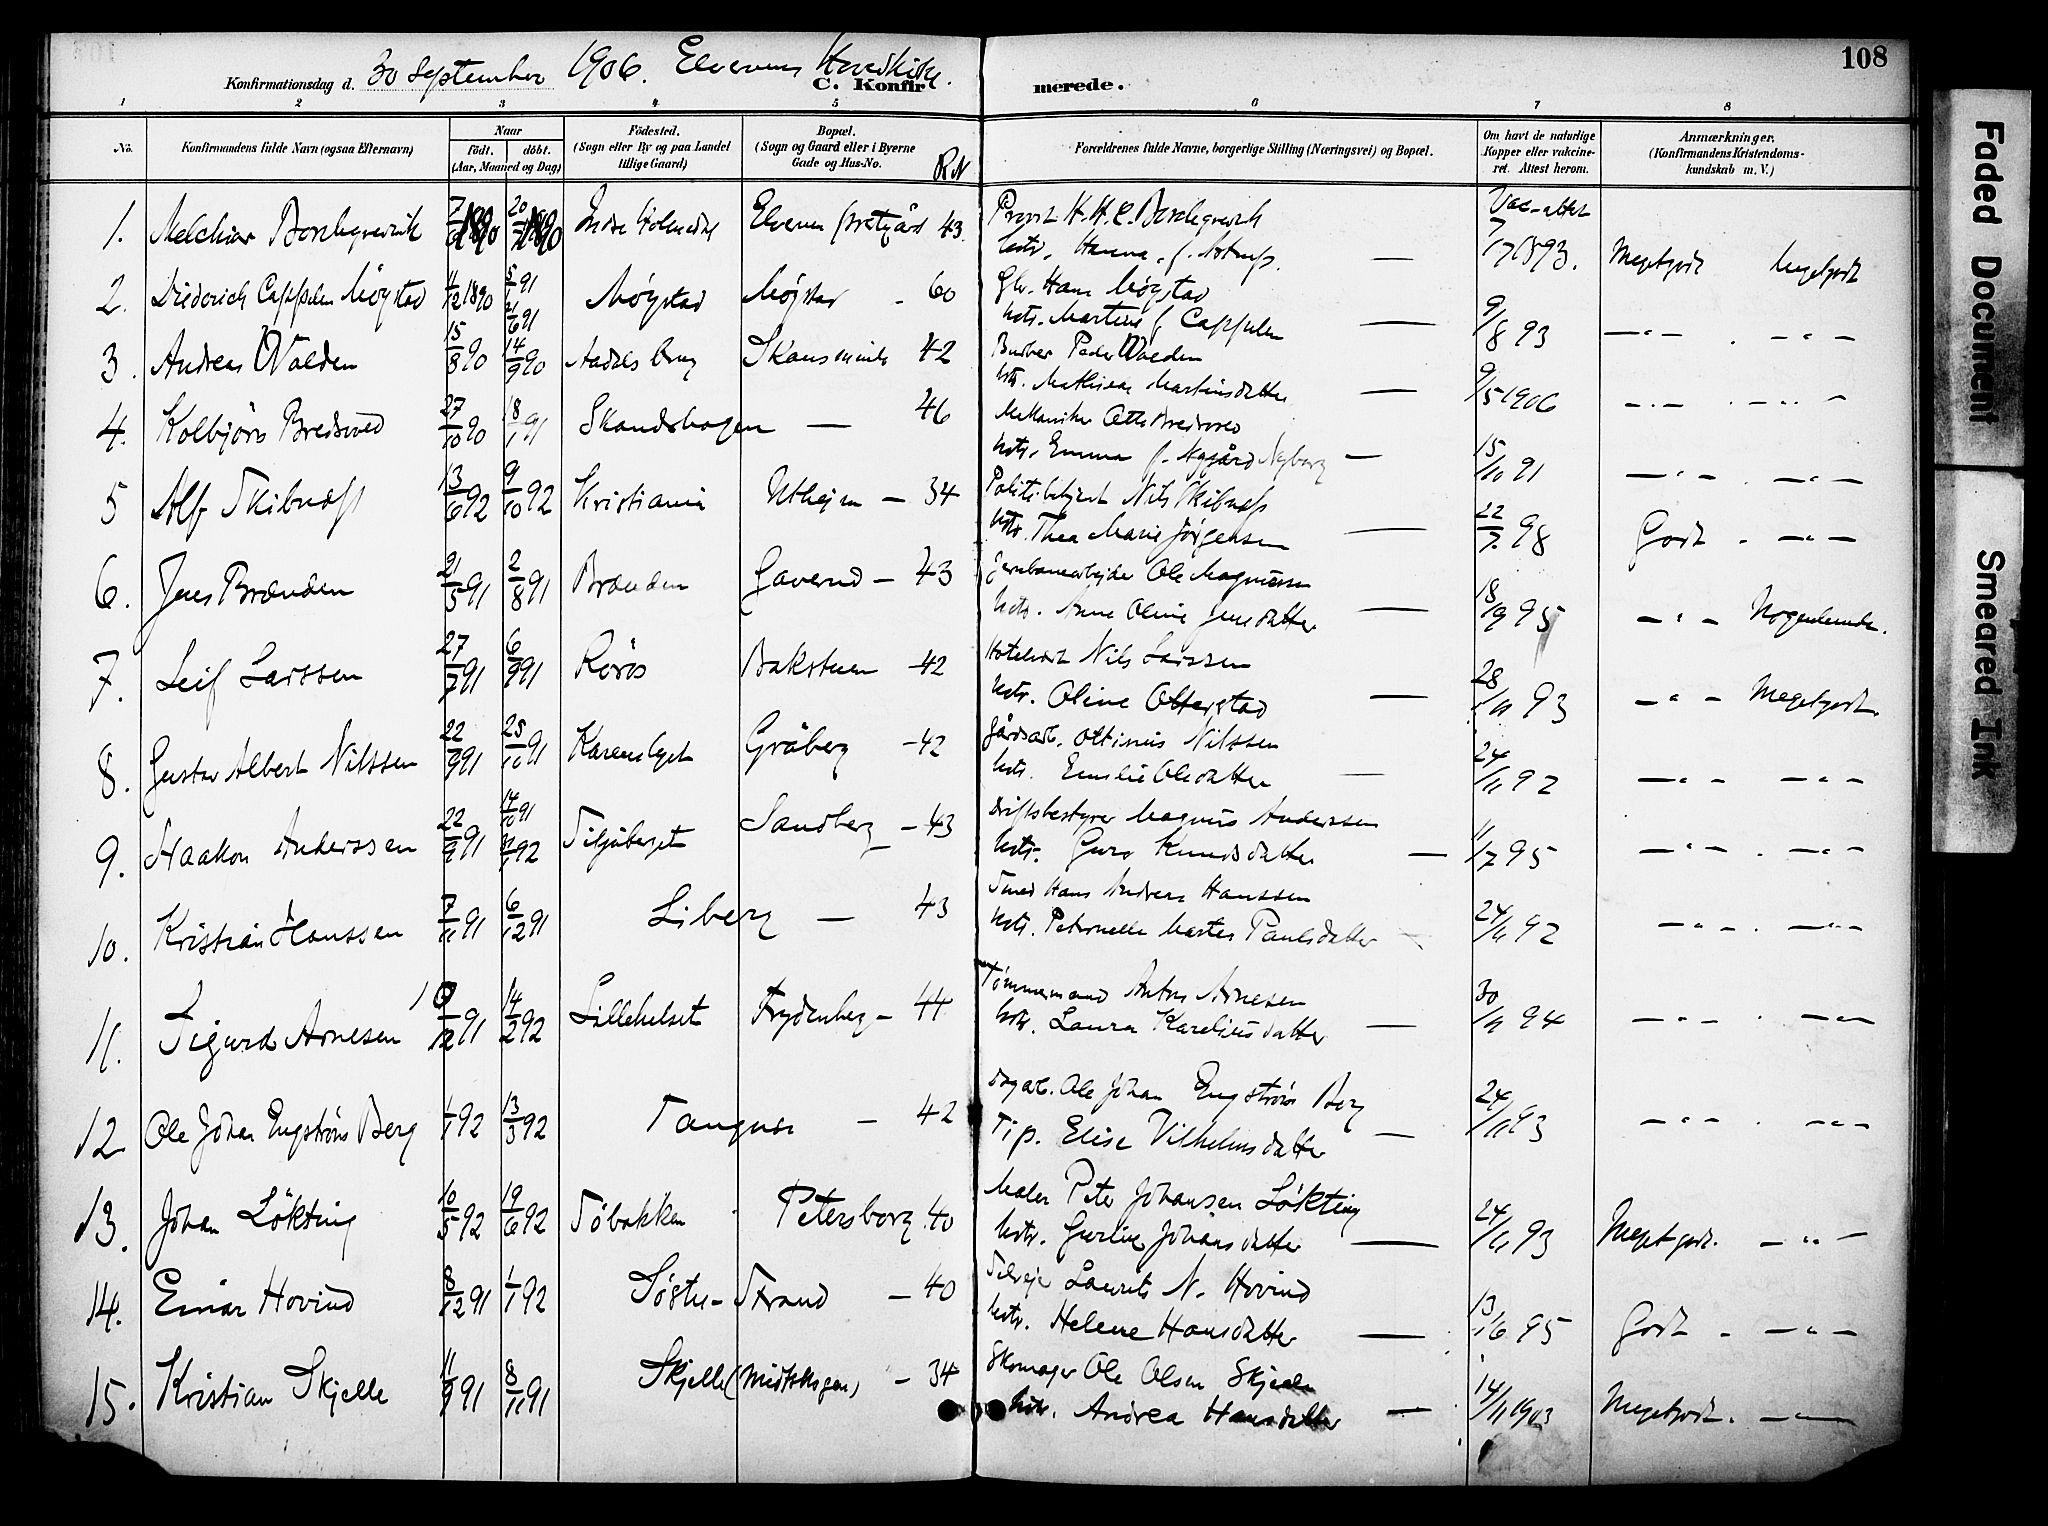 108
Konfirmationsdag d. 30 September 1906. Elverum Hovedkirke.
C. Konfirmerede.
1 2 3 4 5 6 7 8
No. Konfirmandens fulde Navn (ogsaa Efternavn) Naar Født. døbt. (Aar, Maaned og Dag) Fødested. (Sogn eller By og paa Landet tillige Gaard) Bopæl. (Sogn og Gaard eller i Byerne Gade og Hus-No. RN Forældrenes fulde Navne, borgerlige Stilling (Næringsvei) og Bopæl. Om havt de naturlige Kopper eller vaccineret. Attest herom. Anmærkninger. (Konfirmandens Kristendomskundskab m. V.)
1. Melchior Borchgrevink 1890 20 1890 Elverum prestgård 43. Provst H. H. C. Borchgrevink Vac-attst
Hst. Hanna f. — 7/7 1893. Megetgodt Megetgodt
2. Diederich Cappelen Møystad 11/12 1890 5/5 91 Møystad Møystad - 60 Gbr. Hans Møystad
21/6 91 Hst. Martine f. Cappelen — 9/8 93 — " — . — " —
3. Andreas Volden 15/8 90 14/9 90 Aadals brug Skansminde 42 Peder Volden
Hst. Mathea Martinsdatter — 9/5 1906 — " — . — " —
4. Kolbjörn Bredsved 27/10 90 18/1 91 Skandshagen — 46 Mekaniker Otto Bredsved
Hst. Emma f. Nygård Nyborg — 15/10 91 — " — . — " —
5 Alf Skibnæss 13/6 92 9/10 92 Kristiania Utheim — 34 Politibetjent Nils Skibnæss
Hst. Thea Marie Jörgensen — 22/7 98 Godt . — " —
6. Jens Brænden 21/5 91 2/8 91 Brænden Gaverud — 43 Jernbanearbejder Ole Magnussen
Hst. Anne Oline Jensdatter — 18/9 95 — " — Nogenlunde.
7. Leif Larssen 27/7 91 6/9 91 Rörös Bakstuen — 42 Hotelvert Nils Larssen
Hst. Oline Otterstad — 28/11 93 — " — Megetgodt.
8. Gustav Albert Nilssen 22/9 91 25/10 91 Karenslyst Gråberg — 42 Gårdsarb. Ottinius Nilssen
Hst. Emilie Olsdatter — 24/11 92 — " — — " —
9. Haakon Anderssen 22/9 91 14/10 91 Siljuberget Sandberg — 43 Driftsbestyrer Magnus Anderssen
92 Hst. Guro Knudsdatter — 11/7 95 — " — . — " —
10. Kristian Hanssen 7/11 91 6/12 91 Liberg — 43 Smed Hans Andreas Hanssen
Hst. Peternelle Martea Paulsdatter — 24/11 92 — " — . — " —
11. Sigurd Arnesen 10/12 91 14/2 92 Lillehelset Frydenberg — 44 Tømmermand Anton Arnesen
Hst. Laura Kareliusdatter — 30/11 94 — " — . — " —
12 Ole Johan Engströms Berg 1/1 92 13/3 92 Tangnes — 42 Dagarb. Ole Johan Engströms Berg
Tip. Elise Vilhelmsdatter — 24/11 93 — " — . — " —
13. Johan Lökting 10/5 92 19/6 92 Söbakken Petersborg 40 Maler Peter Johansen Lökting
Hst. Gurine Johansdatter — 24/11 93 Megetgodt. — " —
14. Einar Hovind 8/12 91 1/1 92 Söstu — Strand — 40 Selveje Laurits N. Hovind
Hst. Helene Hansdatter — 13/6 95 Godt . — " —
15. Kristian Skjelle 11/9 91 8/11 91 Skjelle (Midtskogen) — 34 Skomager Ole Olsen Skjelle
Hst. Andrea Hansdatter — 14/11 1903 Megetgodt. — " —
Faded Document
Smeared Ink